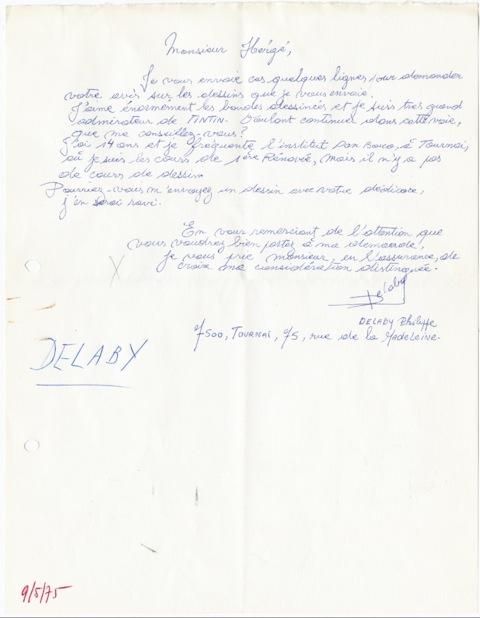 Monsieur Hergé,
Je vous envoie ces quelques lignes pour demander
votre avis sur les dessins que je vous envoie.
J'aime énormement les bandes dessinées et je suis très grand
admirateur de TINTIN. Voulant continuer dans cette voie,
que me conseillez-vous?
J'ai 14 ans et je fréquente l'institut Don Bosco, à Tournai,
où je suis les cours de 1ère Rénovée, mais il n'y a pas
de cours de dessin.
Pourriez-vous m'envoyez un dessin avec votre dédicace,
j'en serai ravi.
En vous remerciant de l'attention que
vous voudrez bien porter à ma demande,
je vous prie monsieur, en l'assurance, de
croire ma considération distinguée.
Delaby
DELABY Philippe
7500, TOURNAI, 75, rue de la MADELEINE.
DELABY
9/5/75